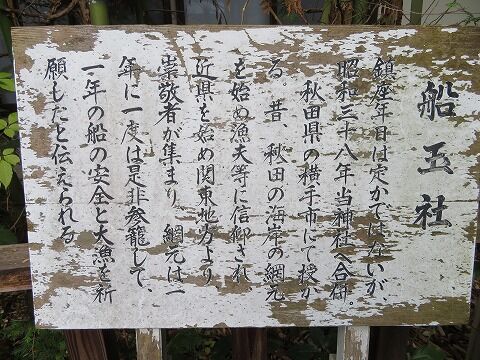 船玉社
鎮座年日は定かではないが、
昭和三十八年当神社へ合祠。
秋田県の横手市にて授か
る。昔、秋田の海岸の網元
を始め漁夫等に信仰され
近県を始め関東地方より
崇敬者が集まり、網元は一
年に一度は是非参籠して、
一年の船の安全と大漁を祈
願したと伝えられる